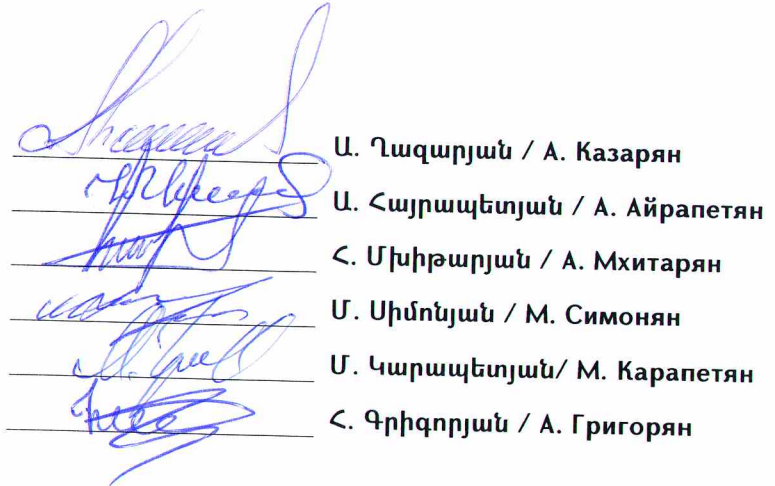 Ա. Ղազարյան / А. Казарян
Ա. Հայրապետյան / А. Айрапетян
Հ. Մխիթարյան / А. Мхитарян
Մ. Սիմոնյան / М. Симонян
Մ. Կարապետյան/ М. Карапетян
Հ. Գրիգորյան / А. Григорян